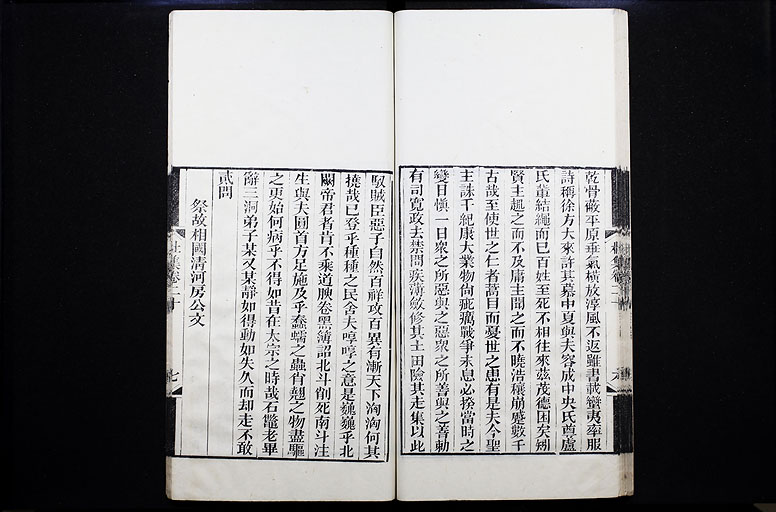 乾骨蔽平原乖氣橫放淳風不返雖書載蠻夷率服
詩稱徐方大來許其慕中夏與夫容成中央氏尊盧
氏輩結繩而已百姓至死不相往來茲茂德困矣矧
賢主趨之而不及庸主聞之而不曉浩穰崩蹙數千
古哉至使世之仁者蒿目而憂世之患有是夫今聖
主誅千紀康大業物尚疵癘戰爭未息必揆當時之
變日愼一日眾之所惡與之惡眾之所善與之善勅
有司寬政去禁問疾薄斂修其土田險其走集以此
馭賊臣惡子自然百祥攻百異有漸天下洶洶何其
撓哉已登乎種種之民舍夫啍啍之意是巍巍乎北
闕帝君者肯不乘道腴卷黑簿詔北斗削死南斗注
生與夫圓首方足施及乎蠢蠕之蟲肖翹之物盡驅
之更始何病乎不得如昔在太宗之時哉石鼈老畢
辭三洞弟子某又某靜如得動如失久而却走不敢
貳問
祭故相國淸河房公文
杜集卷二十
七